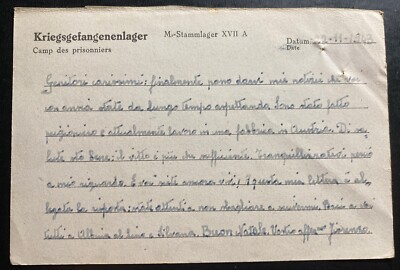 Kriegsgefangenenlager
M.-Stammlager XVII A
Datum: -11-1943
Camp des prisonniers
Date
Genitori carissimi: finalmente posso darvi mie notizie che voi
con ansia state da lungo tempo aspettando. Sono stato fatto
prigioniero e attualmente lavoro in una fabbrica in Austria. Di sa-
lute sto bene; il vitto è più che sufficiente. Tranquillizzatevi perciò
a mio riguardo. E voi siete ancora vivi? A questa mia lettera è al-
legata la risposta: state attenti a non sbagliare a scrivermi. Baci a vo
tutti a Silvana. Buon Natale. Vostro aff.mo Fiorenzo.